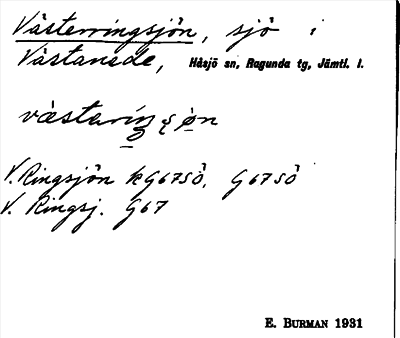 Västerringsjön, sjö i
Västanede, Håsjö sn, Ragunda tg, Jämtl. l.
västąringşön
V. Ringsjön kG67SÖ, G67SÖ
V. Ringsj. G67
E. BURMAN 1931